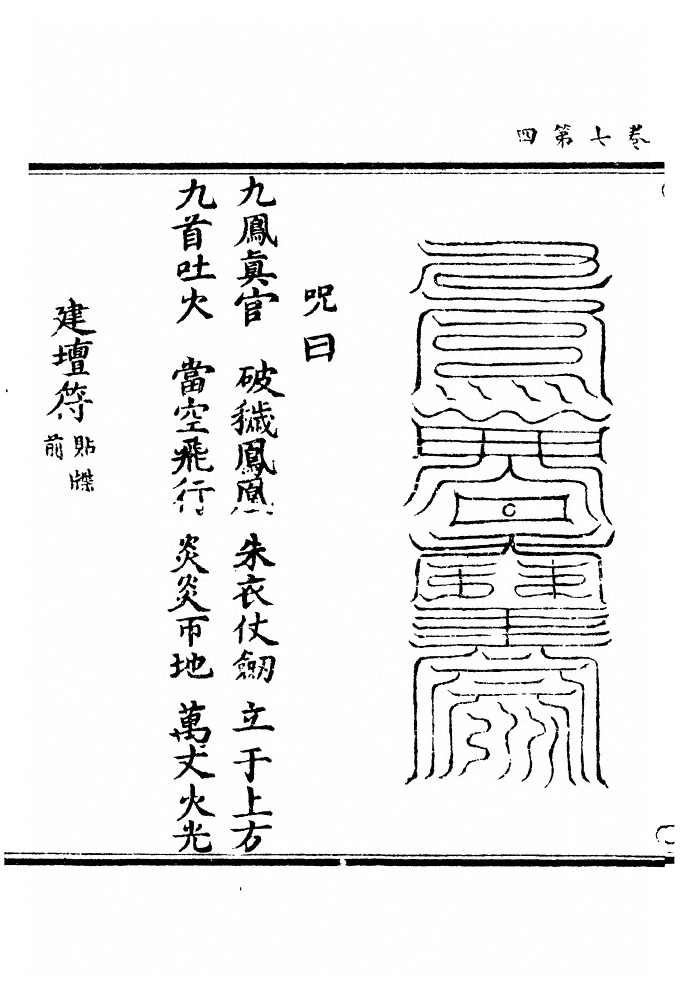 卷七第四
咒曰
九鳳真官 破穢鳳凰 朱衣仗劒 立于上方
九首吐火 當空飛行 炎炎帀地 萬丈火光
建壇符
貼牒
前